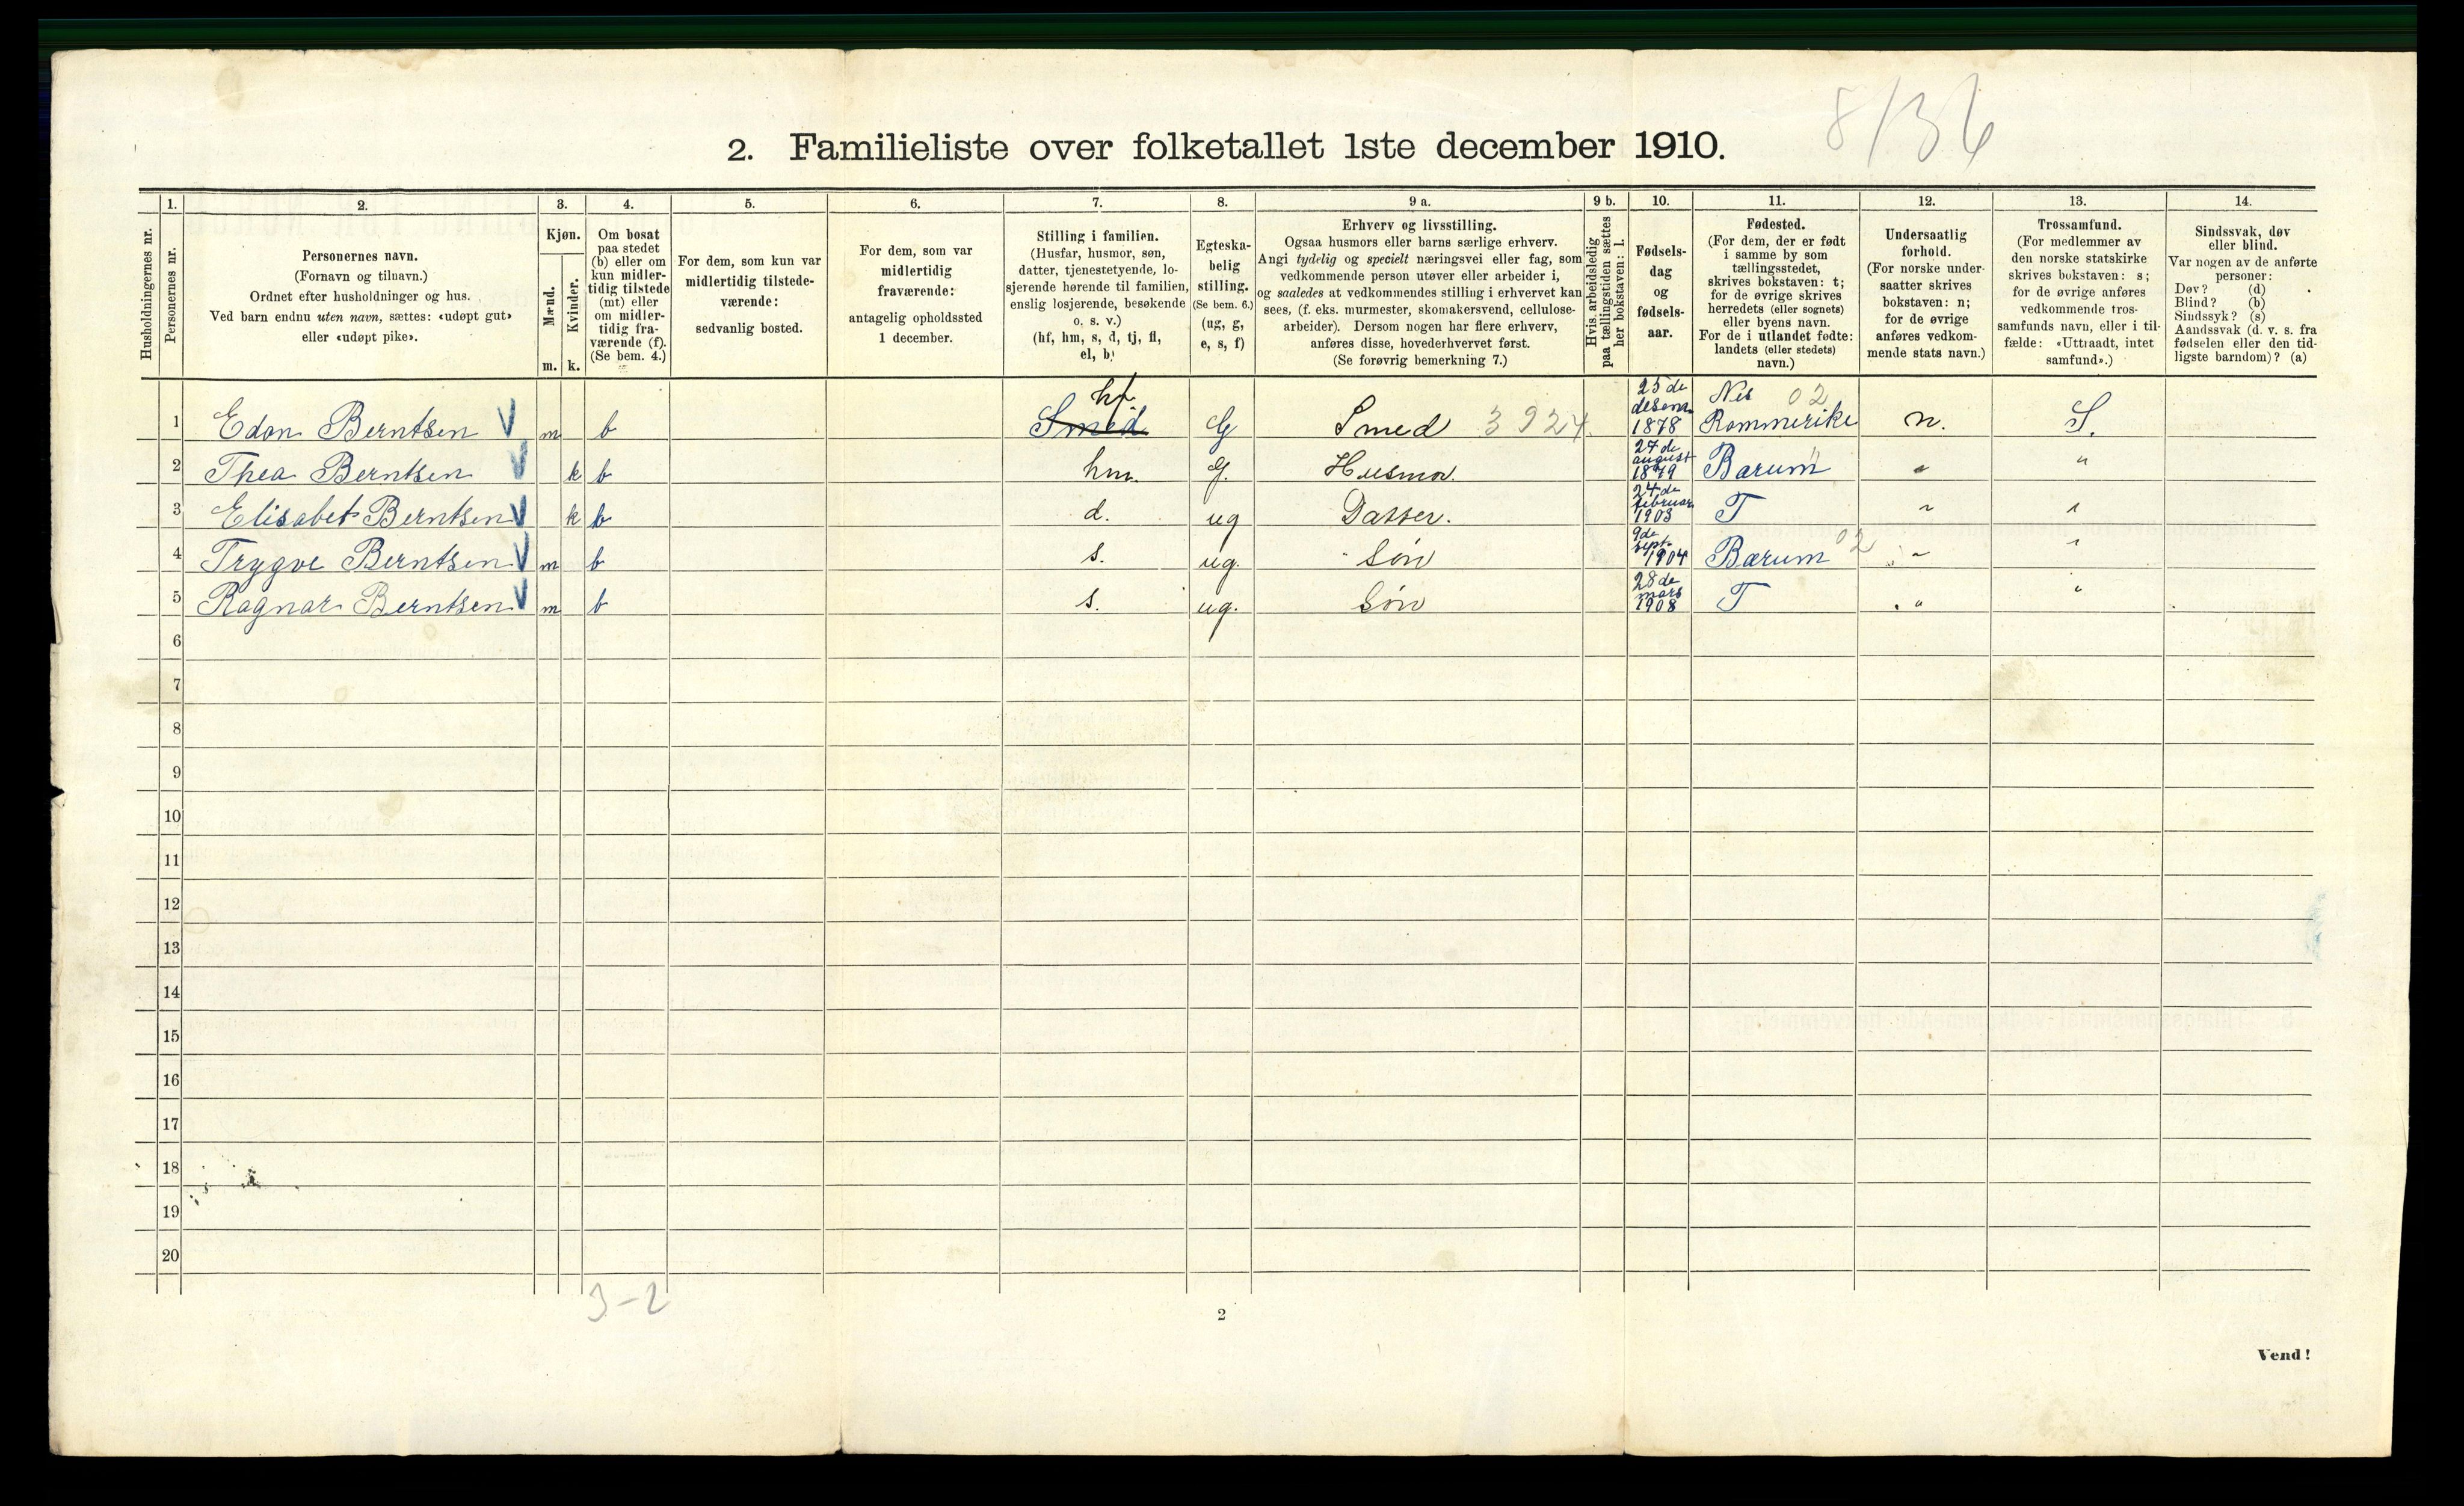 8/36
2. Familieliste over folketallet 1ste december 1910.
1. 2. 3. 4. 5. 6. 7. 8. 9 a. 9 b. 10. 11. 12. 13. 14.
Husholdningernes nr.
Personernes nr.
Personernes navn.
(Fornavn og tilnavn.)
Ordnet efter husholdninger og hus.
Ved barn endnu uten navn, sættes: «udøpt gut»
eller «udøpt pike».
Kjøn.
Mænd.
m.
Kvinder.
k.
Om bosat
paa stedet
(b) eller om
kun midler-
tidig tilstede
(mt) eller
om midler-
tidig fra-
værende (f).
(Se bem. 4.)
For dem, som kun var
midlertidig tilstede-
værende:
sedvanlig bosted.
For dem, som var
midlertidig
fraværende:
antagelig opholdssted
1 december.
Stilling i familien.
(Husfar, husmor, søn,
datter, tjenestetyende, lo-
sjerende hørende til familien,
enslig losjerende, besøkende
o. s. v.)
(hf, hm, s, d, tj, fl,
el, b)
Egteska-
belig
stilling.
(Se bem. 6.)
(ug, g,
e, s, f)
Erhverv og livsstilling.
Ogsaa husmors eller barns særlige erhverv.
Angi tydelig og specielt næringsvei eller fag, som
vedkommende person utøver eller arbeider i,
og saaledes at vedkommendes stilling i erhvervet kan
sees, (f. eks. murmester, skomakersvend, cellulose-
arbeider). Dersom nogen har flere erhverv,
anføres disse, hovederhvervet først.
(Se forøvrig bemerkning 7.)
Hvis arbeidsledig
paa tællingstiden sættes
her bokstaven: l.
Fødsels-
dag
og
fødsels-
aar.
Fødested.
(For dem, der er født
i samme by som
tællingsstedet,
skrives bokstaven: t;
for de øvrige skrives
herredets (eller sognets)
eller byens navn.
For de i utlandet fødte:
landets (eller stedets)
navn.)
Undersaatlig
forhold.
(For norske under-
saatter skrives
bokstaven: n;
for de øvrige
anføres vedkom-
mende stats navn.)
Trossamfund.
(For medlemmer av
den norske statskirke
skrives bokstaven: s;
for de øvrige anføres
vedkommende tros-
samfunds navn, eller i til-
fælde: «Uttraadt, intet
samfund».)
Sindssvak, døv
eller blind.
Var nogen av de anførte
personer:
Døv? (d)
Blind? (b)
Sindssyk? (s)
Aandssvak (d. v. s. fra
fødselen eller den tid-
ligste barndom)? (a)
1 Edon Berntsen V m b Smed hf. G Smed 3924 25de desem. 1878 Nes 02 Rommerike n. S.
2 Thea Berntsen V k b hm. g. Husmor. 27de august 1879 Barum " " "
3 Elisabet Berntsen V k b d. ug Datter. 24de februar 1903 T " "
4 Trygve Berntsen V m b s. ug. Søn 9de sept. 1904 Bærum 02 " "
5 Ragnar Berntsen V m b s. ug. Søn 28de mars 1908 T " "
6
7
8
9
10
11
12
13
14
15
16
17
18
19
20
3-2
2
Vend!